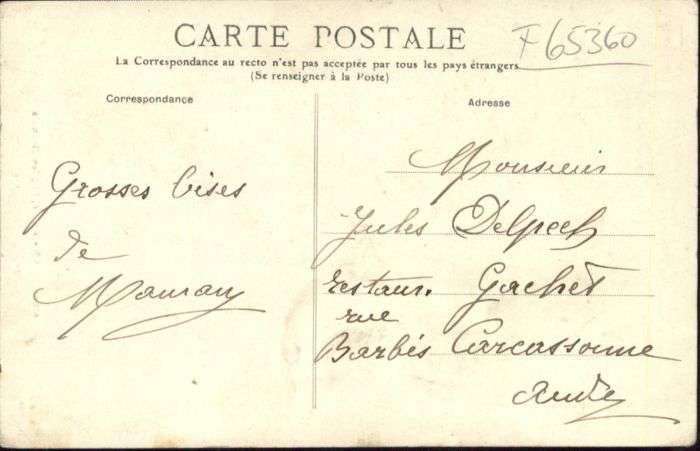 CARTE POSTALE
F65360
La Correspondance au recto n'est pas acceptée par tous les pays étrangers
(Se renseigner à la Poste)
Correspondance
Grosses bises
de
Maman
Adresse
Monsieur
Jules Delpech
restaur. Gachet
rue
Barbès Carcassonne
Aude